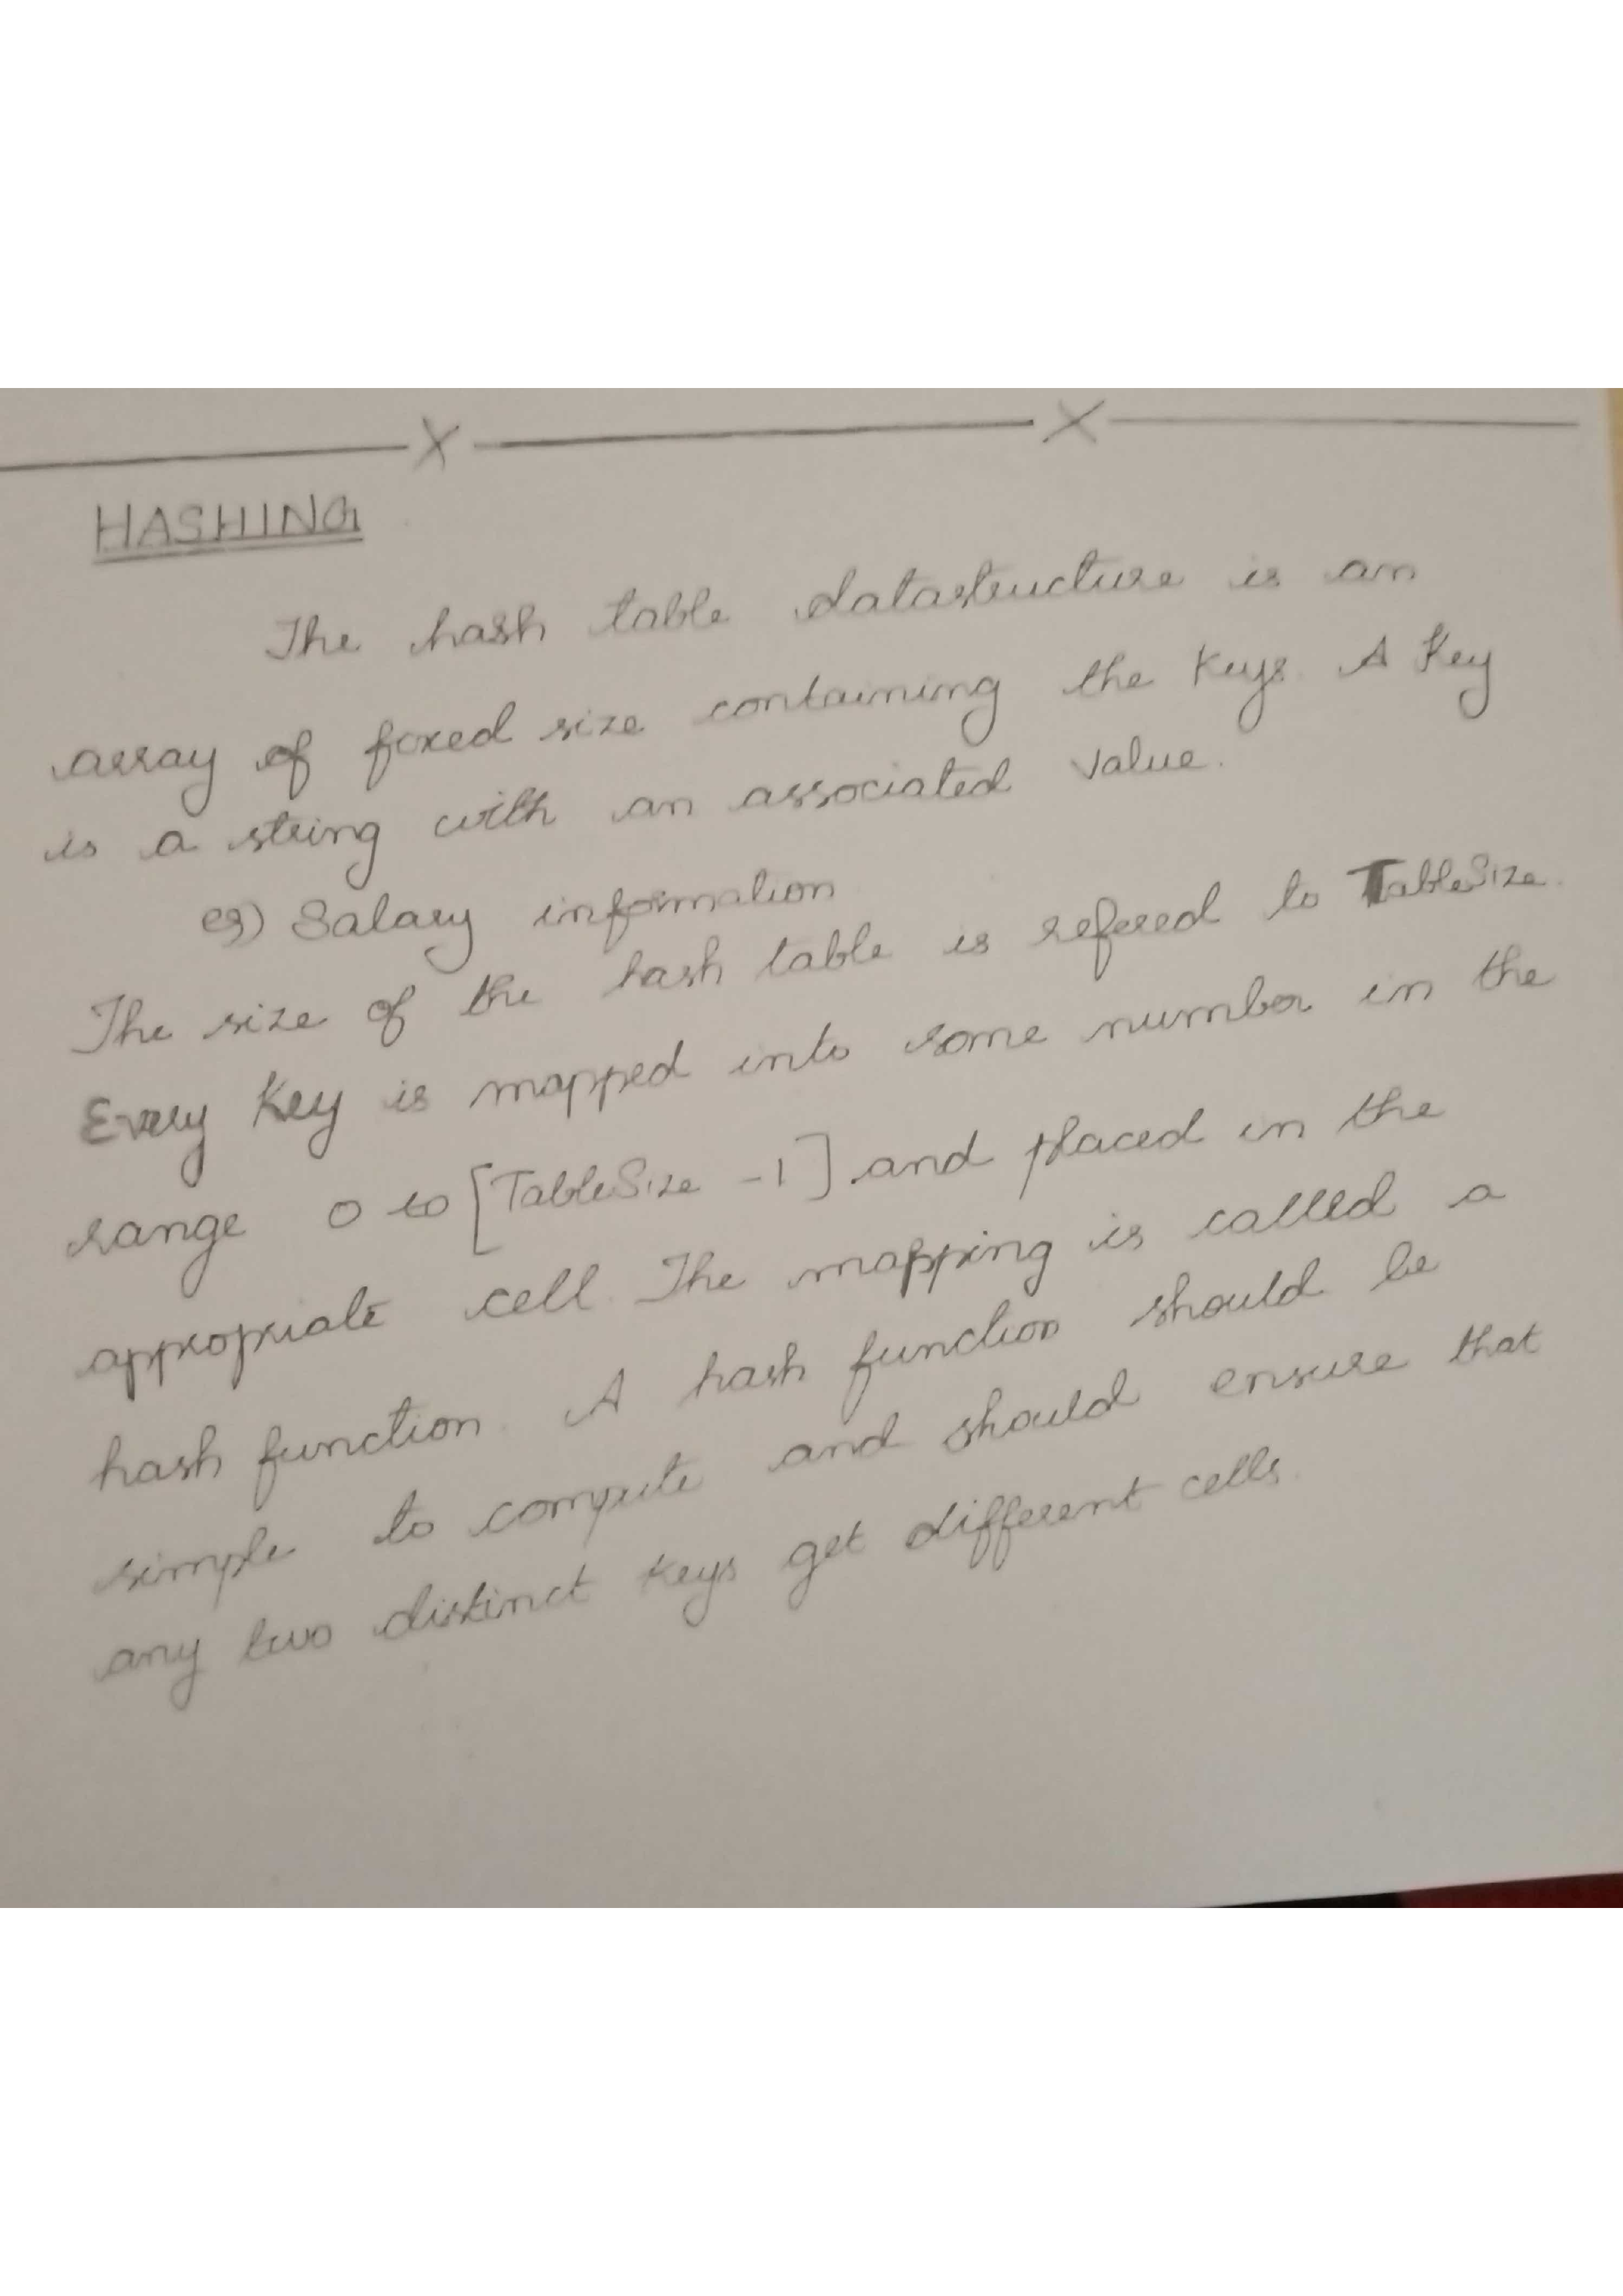 HASHING
The hash table datastructure is an
array of fixed size containing the keys. A key
is a string with an associated value.
eg) Salary information
The size of the hash table is refered to TableSize.
Every key is mapped into some number in the
range 0 to [TableSize -1] and placed in the
appropriate cell. The mapping is called a
hash function. A hash function should be
simple to compute and should ensure that
any two distinct keys get different cells.